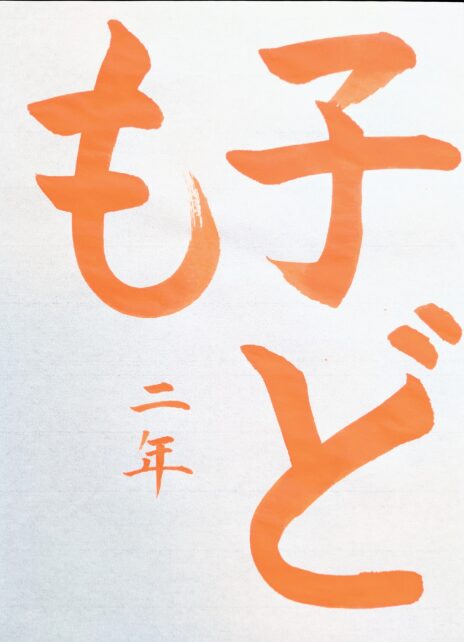 子ど
も
二年